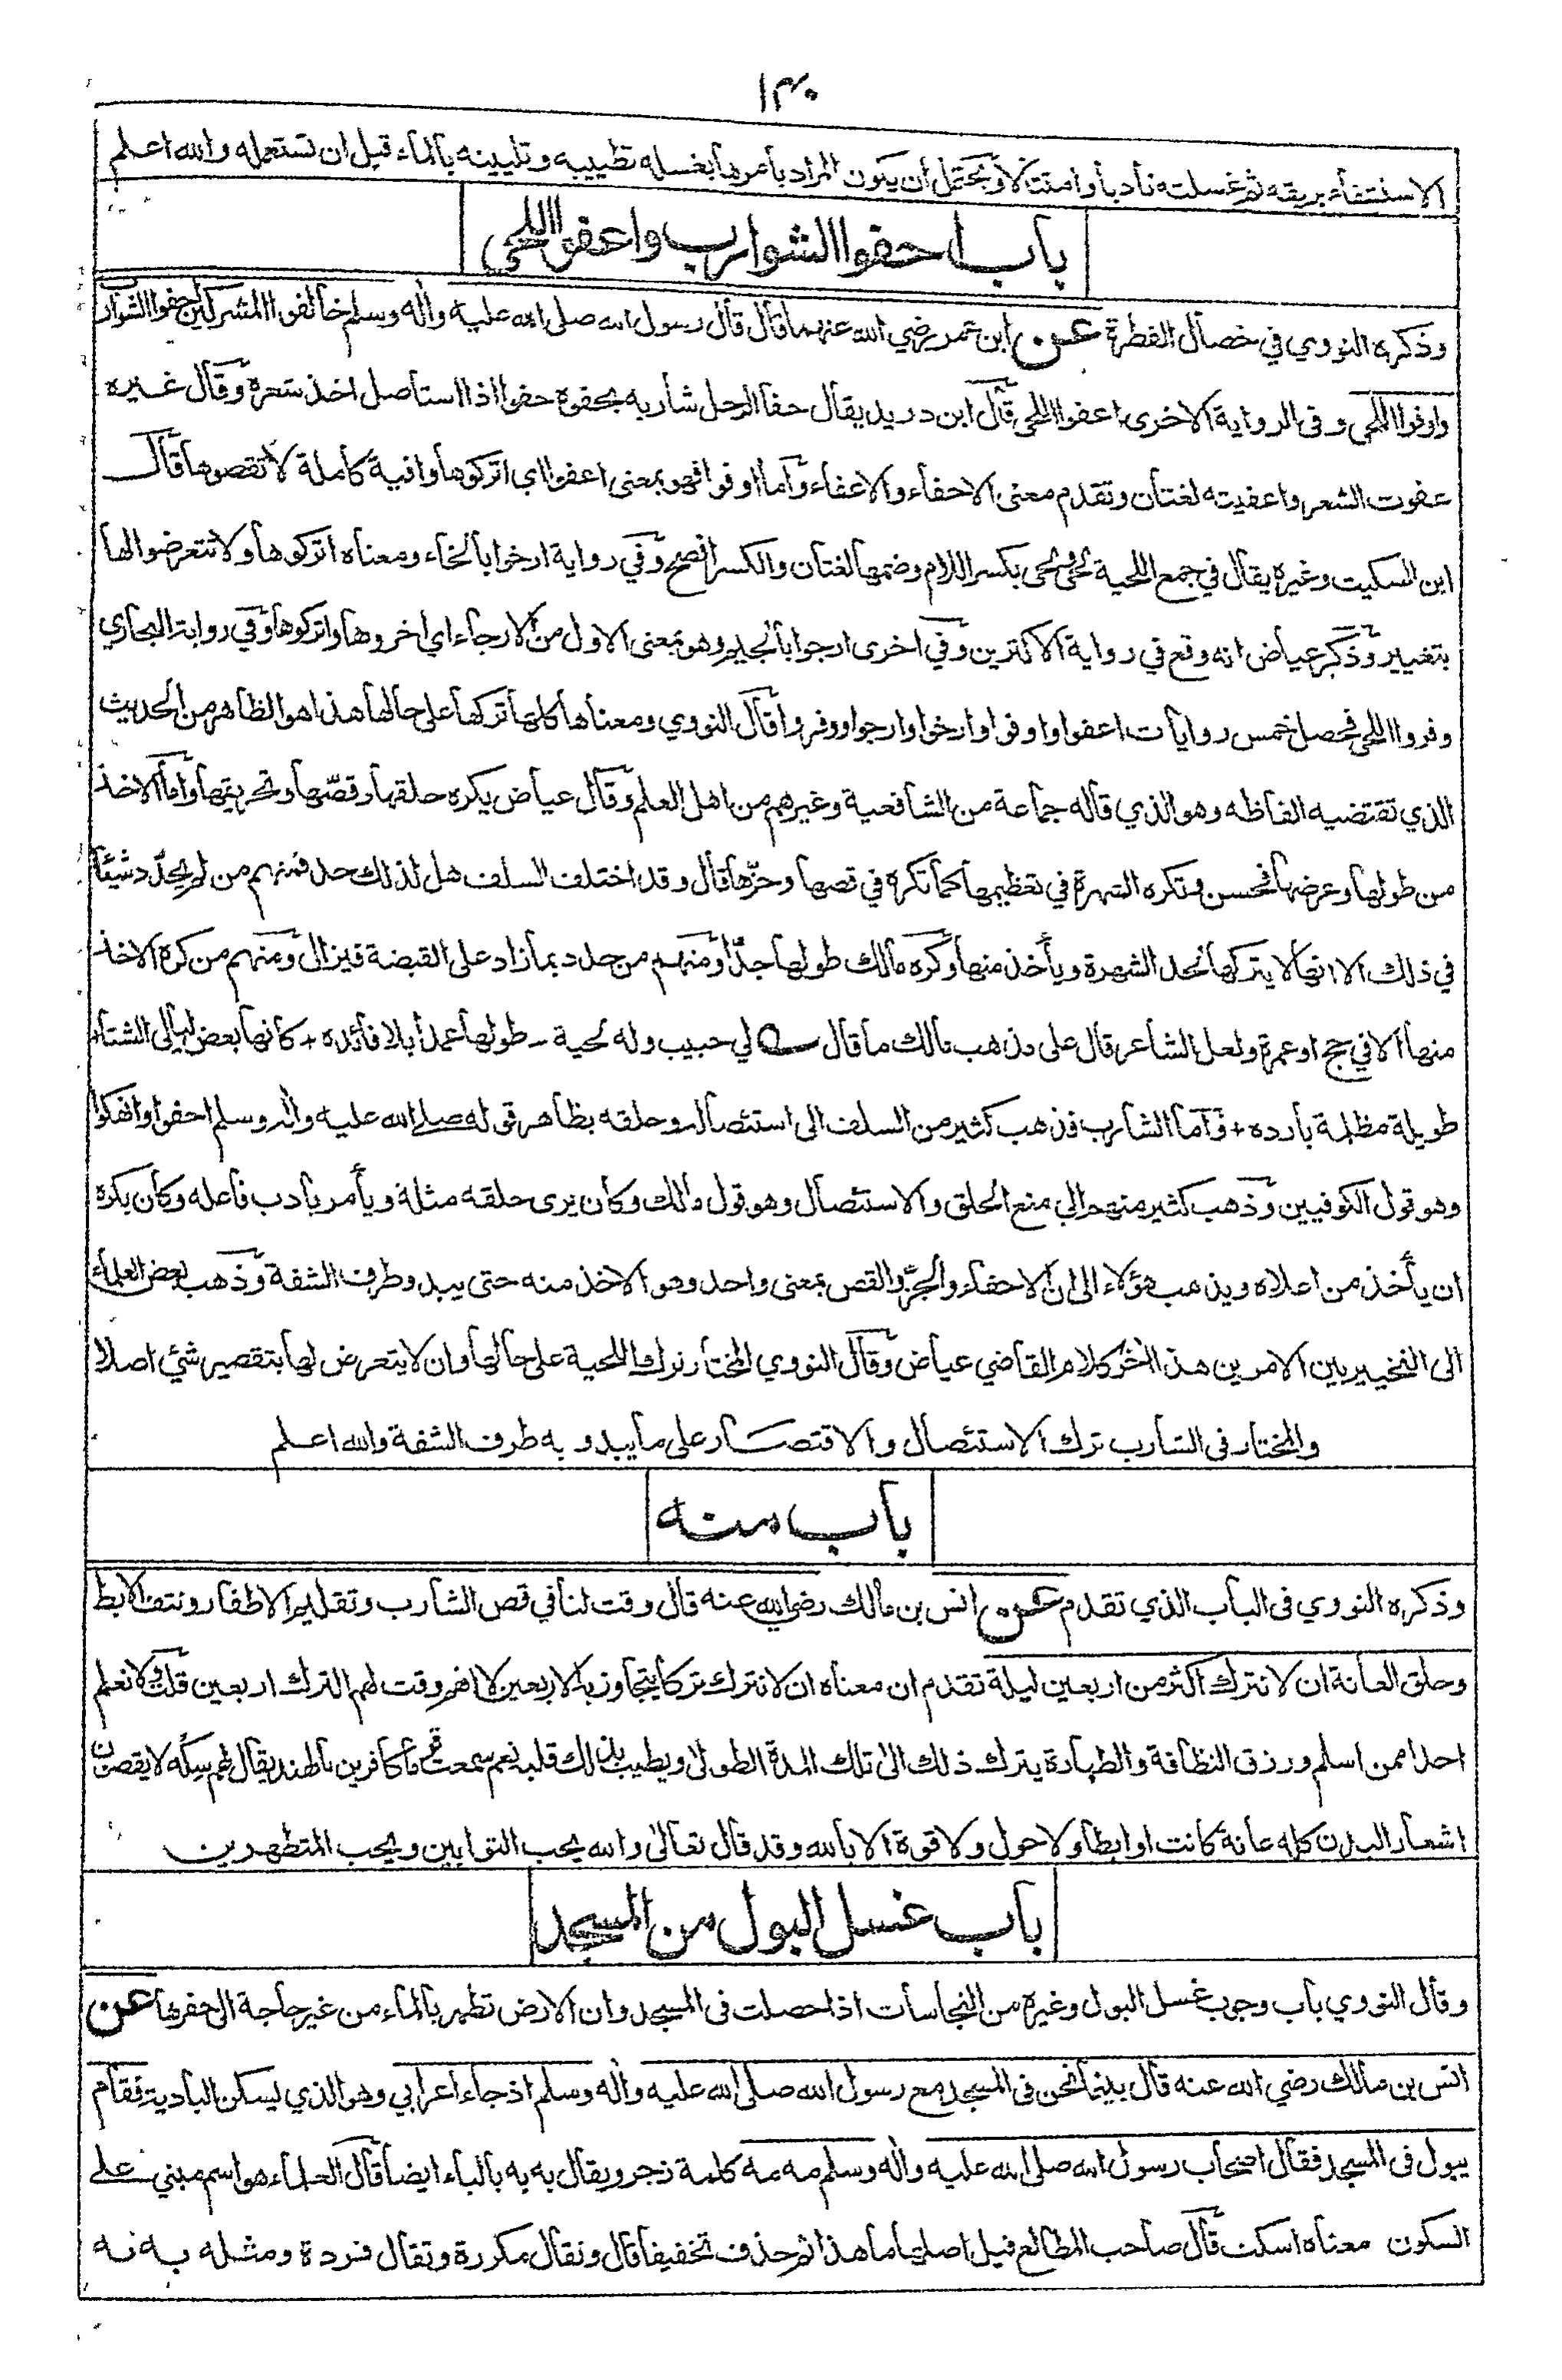 ١٣٠
الاستشفاء بريقه ثم غسلته تأدبا وامتثالا ويحتمل أن يكون المراد بأمرها بغسله تطييبه وتليينه بالماء قبل ان تستعمله والله اعلم
باب احفوا الشوارب واعفوا اللحى
وذكره النووي في خصال الفطرة عن ابن عمر رضي الله عنهما قال قال رسول الله صلى الله عليه واله وسلم خالفوا المشركين احفوا الشوارب
واوفوا اللحى وفى الرواية الاخرى اعفوا اللحى قال ابن دريد يقال حفا الرجل شاربه يحفوه حفوا اذا استاصل اخذ شعره وقال غيره
عفوت الشعر واعفيته لغتان وتقدم معنى الاحفاء والاعفاء وأما اوفوا فهو بمعنى اعفوا اي اتركوها وافية كاملة لا تقصوها قال
ابن السكيت وغيره يقال في جمع اللحية لحى ولحى بكسر اللام وضمها لغتان والكسر افصح وفي رواية ارخوا بالخاء ومعناه اتركوها ولا تتعرضوا لها
بتغيير وذكر عياض انه وقع في رواية الاكثرين وفي اخرى ارجوا بالجيم وهو بمعنى الاول من الارجاء اي اخروها واتركوها وفي رواية البخاري
وفروا اللحى فحصل خمس روايات اعفوا واوفوا وارخوا وارجوا ووفروا قال النووي ومعناها كلها تركها على حالها هذا هو الظاهر من الحديث
الذي تقتضيه الفاظه وهو الذي قاله جماعة من الشافعية وغيرهم من اهل العلم وقال عياض يكره حلقها وقصّها وتحريقها وأما الاخذ
من طولها وعرضها فحسن وتكره الشهرة في تعظيمها كما تكره في قصها وجزّها قال وقد اختلف السلف هل لذلك حد فمنهم من لم يحدّد شيئا
في ذلك الا انه لا يتركها لحد الشهرة ويأخذ منها وكره مالك طولها جدّا ومنهم من حدد بما زاد على القبضة فيزال ومنهم من كره الاخذ
منها الا في حج او عمرة ولعل الشاعر قال على مذهب مالك ما قال لي حبيب وله لحية - طولها عمدا بلا فائده + كانها بعض ليالي الشتاء
طويلة مظلمة بارده + وأما الشارب فذهب كثير من السلف الى استئصاله وحلقه بظاهر قوله صلى الله عليه واله وسلم احفوا وانهكوا
وهو قول الكوفيين وذهب كثير منهم الي منع الحلق والاستئصال وهو قول مالك وكان يرى حلقه مثلة ويأمر بأدب فاعله وكان يكره
ان يأخذ من اعلاه ويذهب هؤلاء الى ان الاحفاء والجزّ والقص بمعنى واحد وهو الاخذ منه حتى يبدو طرف الشفة وذهب بعض العلماء
الى التخيير بين الامرين هذا اخر كلام القاضي عياض وقال النووي المختار ترك اللحية على حالها وان لا يتعرض لها بتقصير شئ اصلا
والمختار في الشارب ترك الاستئصال والاقتصار على ما يبدو به طرف الشفة والله اعلم
باب منه
وذكره النووي فى الباب الذي تقدم عن انس بن مالك رضي الله عنه قال وقت لنا في قص الشارب وتقليم الاظفار ونتف الابط
وحلق العانة ان لا نترك اكثر من اربعين ليلة تقدم ان معناه ان لا نترك تركا يتجاوز به الاربعين لا انه وقت لهم الترك اربعين قلت ولا نعلم
احدا ممن اسلم ورزق النظافة والطهارة يترك ذلك الى تلك المدة الطولى ويطيب بذلك قلبه نعم سمعت قوما كافرين بالهند يقال لهم سكه لا يقصون
اشعار البدن كله عانة كانت او ابطا ولا حول ولا قوة الا بالله وقد قال تعالى والله يحب التوابين ويحب المتطهرين
باب غسل البول من المسجد
وقال النووي باب وجوب غسل البول وغيره من النجاسات اذا حصلت فى المسجد وان الارض تطهر بالماء من غير حاجة الى حفرها عن
انس بن مالك رضي الله عنه قال بينما نحن فى المسجد مع رسول الله صلى الله عليه واله وسلم اذ جاء اعرابي وهو الذي يسكن البادية فقام
يبول فى المسجد فقال اصحاب رسول الله صلى الله عليه واله وسلم مه مه كلمة زجر ويقال به به بالباء ايضا قال العلماء هو اسم مبني على
السكون معناه اسكت قال صاحب المطالع قيل اصلها ما هذا ثم حذف تخفيفا قال وتقال مكررة وتقال فردة ومثله به به